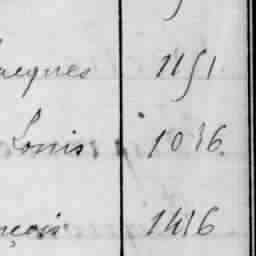 Jacques 1151
Louis 1036
nçois 1416